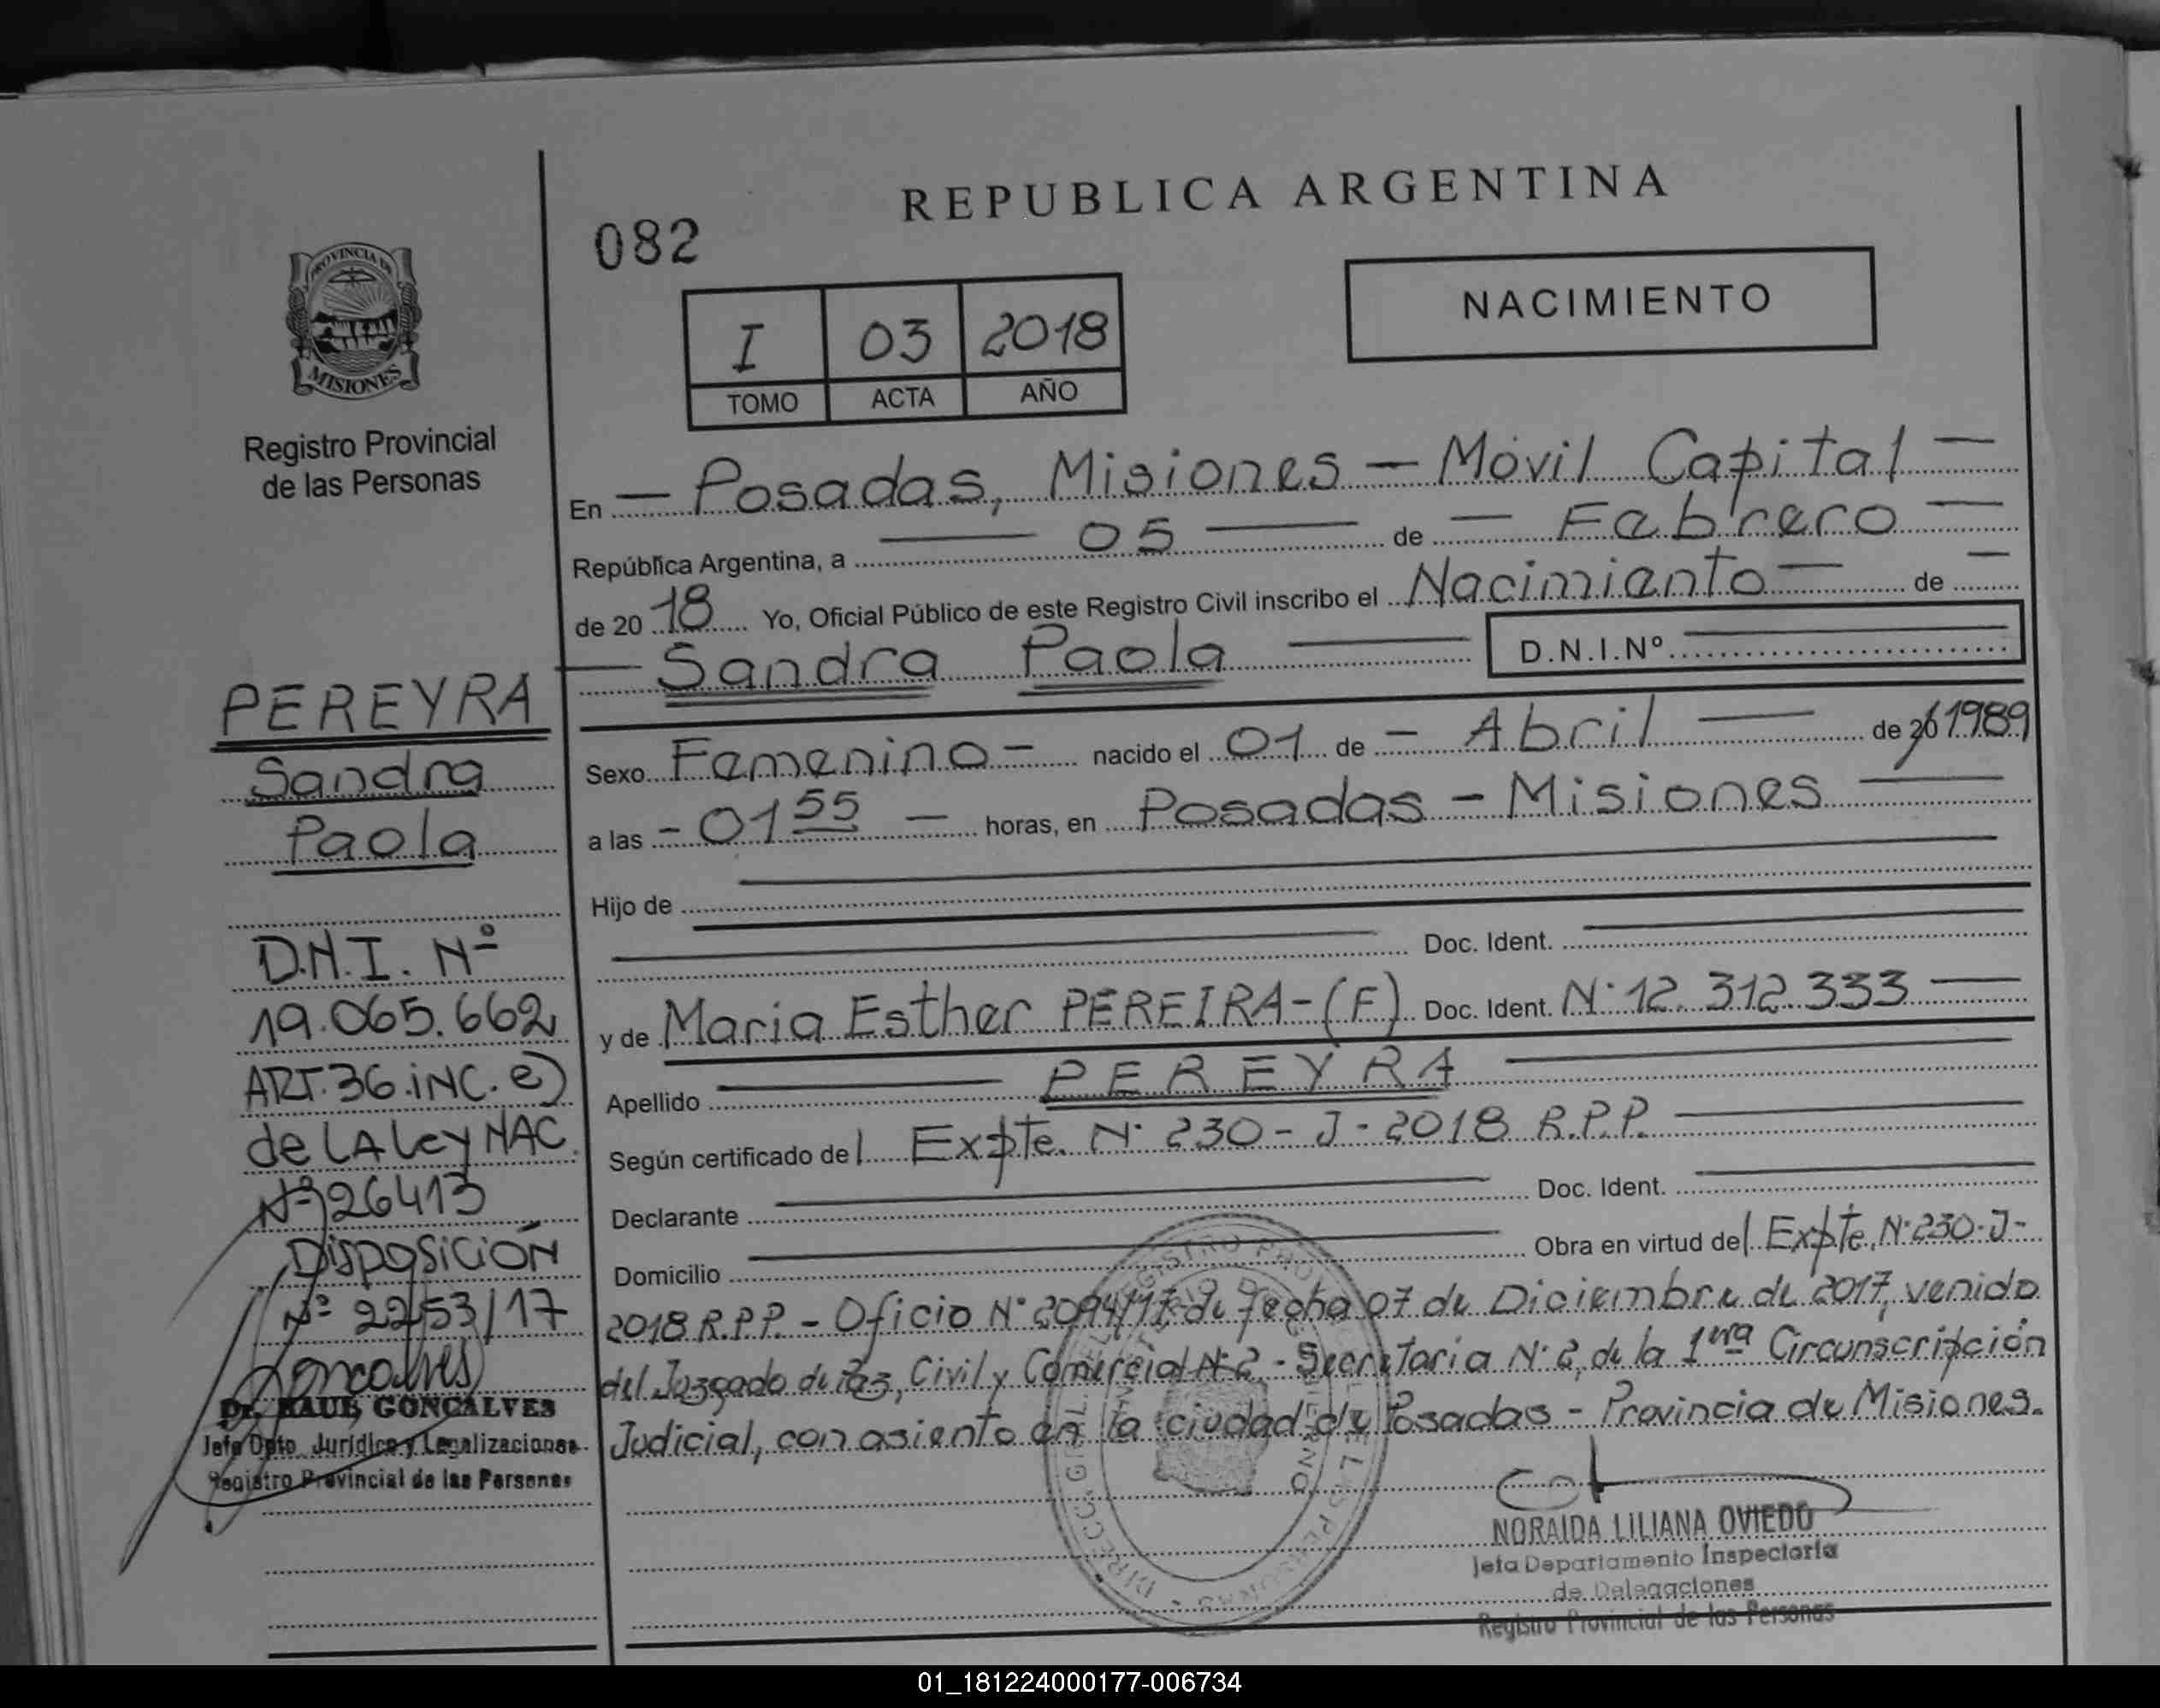 REPUBLICA ARGENTINA
082
NACIMIENTO
I 03 2018
TOMO ACTA AÑO
PROVINCIA DE
MISIONES
Registro Provincial
de las Personas
PEREYRA
Sandra
Paola
D.N.I. Nº
19.065.662
ART. 36.iNC. e)
de LA Ley NAC.
Nº 26413
DisposiCIÓN
Nº 2253/17
Goncalves
Dr. RAUL GONCALVES
Jefe Dpto. Jurídico y Legalizaciones
Registro Provincial de las Personas
En — Posadas, Misiones — Móvil Capital —
República Argentina, a — 05 — de — Febrero —
de 2018 Yo, Oficial Público de este Registro Civil inscribo el Nacimiento — de —
— Sandra Paola — D.N.I.Nº —
Sexo Femenino — nacido el 01 de — Abril — de 20/1989
a las - 01 55 — horas, en Posadas - Misiones —
Hijo de —
— Doc. Ident. —
y de Maria Esther PEREIRA-(F) Doc. Ident. N° 12.312.333 —
Apellido — PEREYRA —
Según certificado del Expte. N° 230 - J - 2018 R.P.P. —
Declarante — Doc. Ident. —
Domicilio — Obra en virtud del Expte. N° 230-J-
2018 R.P.P. - Oficio N° 2094/17 de fecha 07 de Diciembre de 2017, venido
del Juzgado de Paz, Civil y Comercial N° 2 - Secretaria N° 2, de la 1era Circunscripción
Judicial, con asiento en la ciudad de Posadas - Provincia de Misiones.
NORAIDA LILIANA OVIEDO
Jefa Departamento Inspectoría
de Delegaciones
Registro Provincial de las Personas
01_181224000177-006734